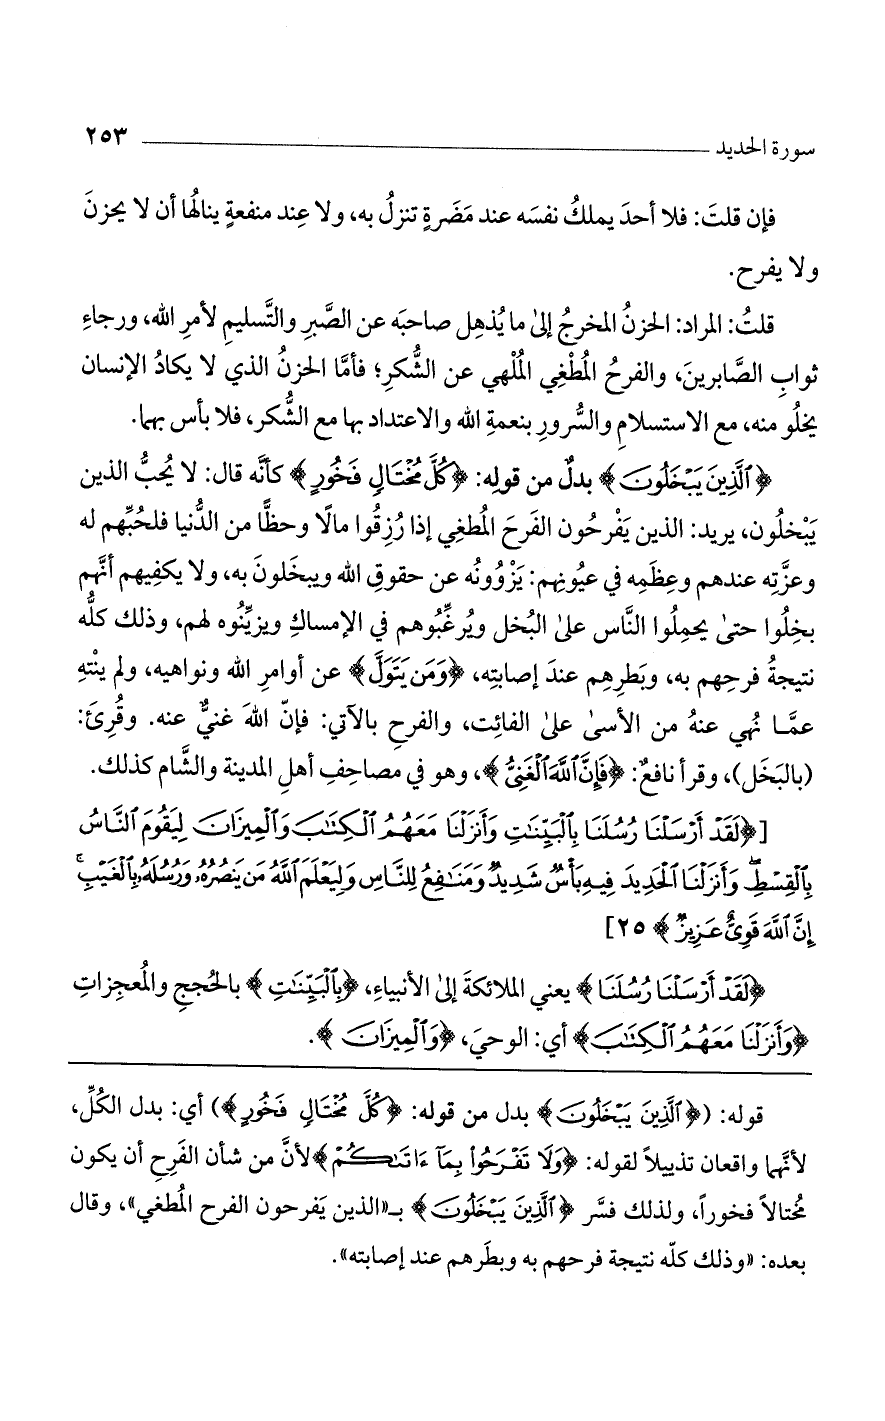 سورة الحديد ٢٥٣
فإن قلتَ: فلا أحدَ يملكُ نفسَه عند مَضَرةٍ تنزلُ به، ولا عِند منفعةٍ ينالُها أن لا يحزنَ
ولا يفرح.
قلتُ: المراد: الحزنُ المخرجُ إلىٰ ما يُذهِل صاحبَه عن الصَّبرِ والتَّسليمِ لأمرِ الله، ورجاءِ
ثوابِ الصَّابرينَ، والفرحُ المُطْغِي المُلْهي عن الشُّكرِ؛ فأمَّا الحزنُ الذي لا يكادُ الإنسان
يخلُو منه، مع الاستسلامِ والسُّرورِ بنعمةِ الله والاعتداد بها مع الشُّكر، فلا بأس بهما.
﴿ٱلَّذِينَ يَبْخَلُونَ﴾ بدلٌ من قولِه: ﴿كُلَّ مُخْتَالٍ فَخُورٍ﴾ كأنَّه قال: لا يُحِبُّ الذين
يَبْخلُون، يريد: الذين يَفْرحُون الفَرحَ المُطغِي إذا رُزِقُوا مالًا وحظًّا من الدُّنيا فلحُبِّهم له
وعزَّتِه عندهم وعِظَمِه في عيُونِهم: يَزْوُونُه عن حقوقِ الله ويبخَلونَ به، ولا يكفِيهم أنَّهم
بخِلُوا حتىٰ يحمِلُوا النَّاس علىٰ البُخل ويُرغِّبُوهم في الإمساكِ ويزيِّنُوه لهم، وذلك كلُّه
نتيجةُ فرحِهم به، وبَطرِهِم عندَ إصابتِه، ﴿وَمَن يَتَوَلَّ﴾ عن أوامرِ الله ونواهيه، ولم ينْتهِ
عمَّا نُهي عنهُ من الأسىٰ علىٰ الفائِت، والفرحِ بالآتي: فإنّ اللهَ غنيٌّ عنه. وقُرِئَ:
(بالبَخَل)، وقرأ نافعٌ: ﴿فَإِنَّ ٱللَّهَ ٱلْغَنِيُّ﴾، وهو في مصاحِفِ أهلِ المدينة والشَّام كذلك.
[﴿لَقَدْ أَرْسَلْنَا رُسُلَنَا بِٱلْبَيِّنَـٰتِ وَأَنزَلْنَا مَعَهُمُ ٱلْكِتَـٰبَ وَٱلْمِيزَانَ لِيَقُومَ ٱلنَّاسُ
بِٱلْقِسْطِۖ وَأَنزَلْنَا ٱلْحَدِيدَ فِيهِ بَأْسٌ شَدِيدٌ وَمَنَـٰفِعُ لِلنَّاسِ وَلِيَعْلَمَ ٱللَّهُ مَن يَنصُرُهُۥ وَرُسُلَهُۥ بِٱلْغَيْبِۚ
إِنَّ ٱللَّهَ قَوِيٌّ عَزِيزٌ﴾ ٢٥]
﴿لَقَدْ أَرْسَلْنَا رُسُلَنَا﴾ يعني الملائكةَ إلىٰ الأنبياءِ، ﴿بِٱلْبَيِّنَـٰتِ﴾ بالحُججِ والمُعجِزاتِ
﴿وَأَنزَلْنَا مَعَهُمُ ٱلْكِتَـٰبَ﴾ أي: الوحيَ، ﴿وَٱلْمِيزَانَ﴾.
قوله: (﴿ٱلَّذِينَ يَبْخَلُونَ﴾ بدل من قوله: ﴿كُلَّ مُخْتَالٍ فَخُورٍ﴾) أي: بدل الكُلِّ،
لأنَّهما واقعان تذييلاً لقوله: ﴿وَلَا تَفْرَحُوا۟ بِمَآ ءَاتَىٰكُمْ﴾ لأنَّ من شأن الفَرِحِ أن يكون
مُختالاً فخوراً، ولذلك فسَّر ﴿ٱلَّذِينَ يَبْخَلُونَ﴾ بـ«الذين يَفرحون الفرح المُطغي»، وقال
بعده: «وذلك كلّه نتيجة فرحهم به وبطَرهم عند إصابته».